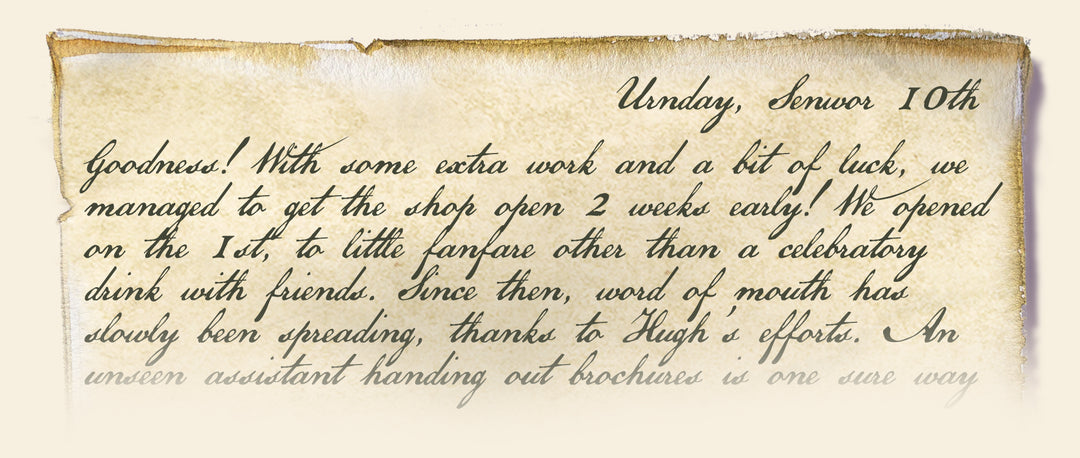 Urnday, Senwor 10th
Goodness! With some extra work and a bit of luck, we
managed to get the shop open 2 weeks early! We opened
on the 1st, to little fanfare other than a celebratory
drink with friends. Since then, word of mouth has
slowly been spreading, thanks to Hugh's efforts. An
unseen assistant handing out brochures is one sure way